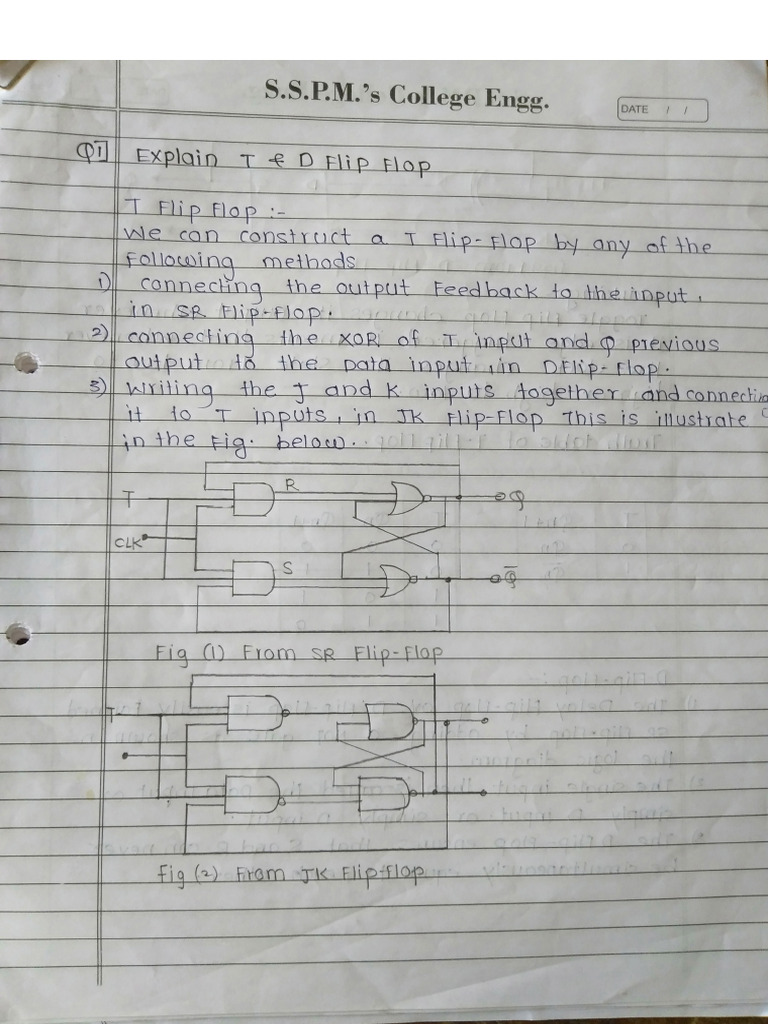 S.S.P.M.'s College Engg.
DATE / /
Q1] Explain T & D Flip Flop
T Flip Flop :-
We can construct a T Flip-Flop by any of the
Following methods
1) connecting the output Feedback to the input,
in SR Flip-Flop.
2) connecting the XOR of T input and Q previous
output to the Data input, in D Flip-Flop.
3) writing the J and K inputs together and connectin
it to T inputs, in JK Flip-Flop This is illustrate
in the Fig. below..
T
R
Q
CLK
S
Q̅
Fig (1) From SR Flip-Flop
T
Fig (2) From JK Flip-Flop